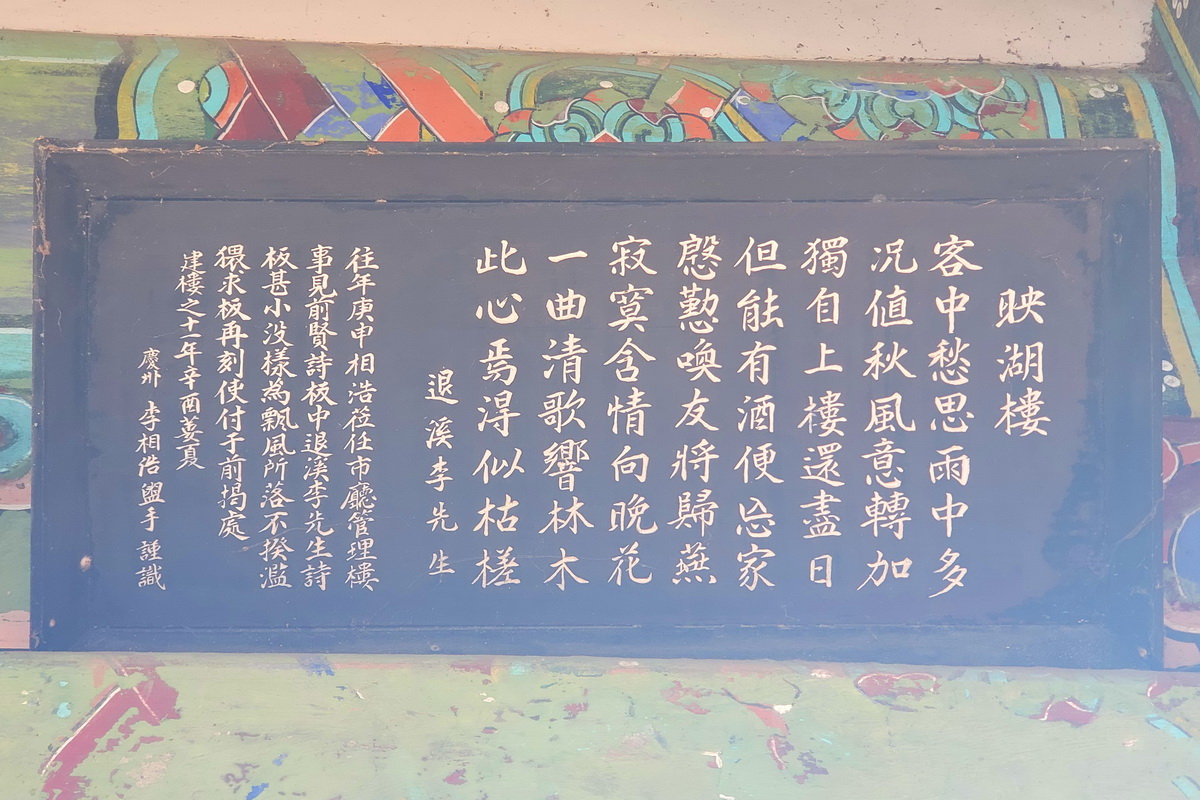 映湖樓
客中愁思雨中多
況値秋風意轉加
獨自上樓還盡日
但能有酒便忘家
慇懃喚友將歸燕
寂寞含情向晚花
一曲清歌響林木
此心焉得似枯槎
退溪李先生
往年庚申相浩莅任市廳管理樓
事見前賢詩板中退溪李先生詩
板甚小沒樣爲飄風所落不揆濫
猥求板再刻使付于前揭處
建樓之十一年辛酉菱夏
慶州 李相浩盥手謹識